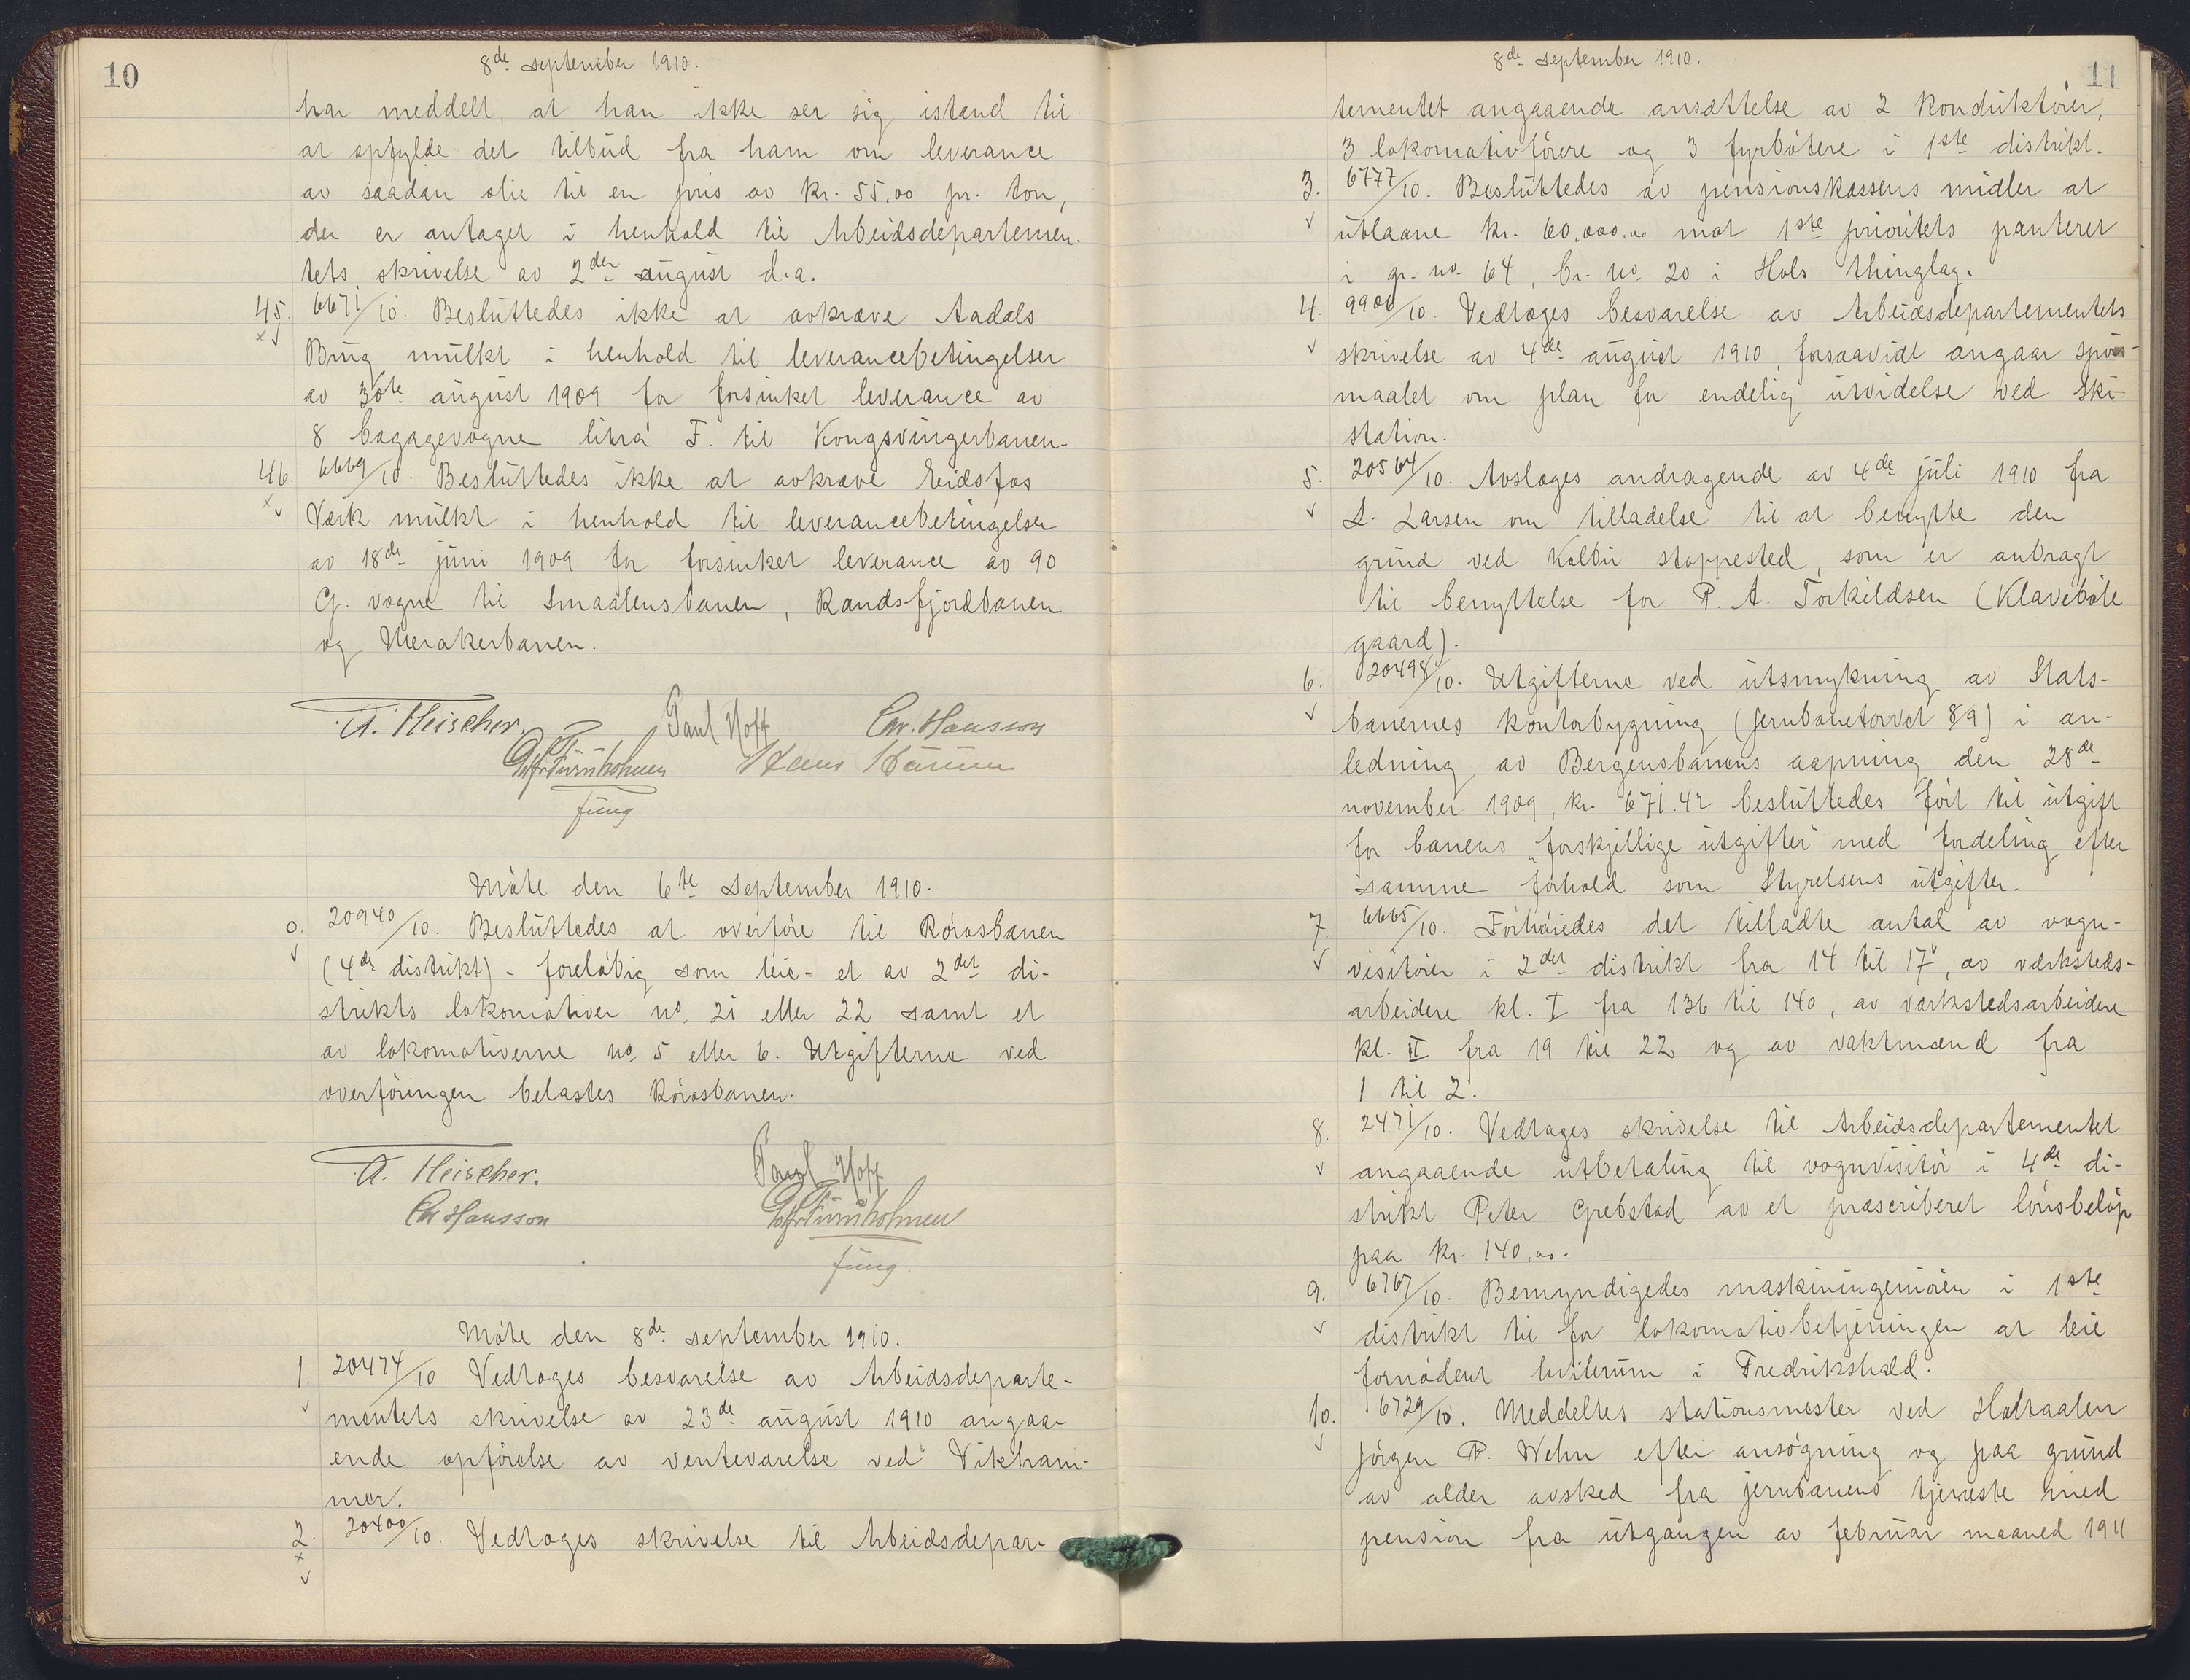 10
8de september 1910.
har meddelt, at han ikke ser sig istand til
at opfylde det tilbud fra ham om leverance
av saadan olie til en pris av kr. 55,00 pr. ton,
der er antaget i henhold til Arbeidsdepartemen-
tets skrivelse av 2den august d.a.
45. 6671/10. Besluttedes ikke at avkræve Aadals
Brug mulkt i henhold til leverancebetingelser
av 30te august 1909 for forsinket leverance av
8 bagagevogne litra F. til Kongsvingerbanen.
46. 6669/10. Besluttedes ikke at avkræve Eidsfos
Værk mulkt i henhold til leverancebetingelser
av 18de juni 1909 for forsinket leverance av 90
G. vogne til Smaalensbanen, Randsfjordbanen
og Merakerbanen.
A. Fleischer. Paul Hoff Chr. Hansson
Hans
fung
Møte den 6te september 1910.
0. 20940/10. Besluttedes at overføre til Rørosbanen
(4de distrikt) - foreløbig som leie - et av 2det di-
strikts lokomotiver no. 21 eller 22 samt et
av lokomotiverne no. 5 eller 6. Utgifterne ved
overføringen belastes Rørosbanen.
A. Fleischer. Paul Hoff
Chr Hansson
fung.
Møte den 8de september 1910.
1. 20474/10. Vedtoges besvarelse av Arbeidsdeparte-
mentets skrivelse av 23de august 1910 angaa-
ende opførelse av venteværelse ved Vikham-
mer.
2. 20400/10. Vedtoges skrivelse til Arbeidsdepar-
8de september 1910.
11
tementet angaaende ansættelse av 2 konduktører,
3 lokomotivførere og 3 fyrbøtere i 1ste distrikt.
3. 6777/10. Besluttedes av pensionskassens midler at
utlaane kr. 60.000.00 mot 1ste prioritets panteret
i gr. no. 64, br. no. 20 i Hols thinglag.
4. 9900/10. Vedtoges besvarelse av Arbeidsdepartementets
skrivelse av 4de august 1910, forsaavidt angaar spørs-
maalet om plan for endelig utvidelse ved Ski
station.
5. 20564/10. Avsloges andragende av 4de juli 1910 fra
L. Larsen om tilladelse til at benytte den
grund ved Kolbu stoppested, som er anbragt
til benyttelse for P. A. Torkildsen (Klavebøle
gaard).
6. 20498/10. Utgifterne ved utsmykning av Stats-
banernes kontorbygning (Jernbanetorvet 8/9) i an-
ledning av Bergensbanens aapning den 28de
november 1909, kr. 671.42 besluttedes ført til utgift
for banens "forskjellige utgifter" med fordeling efter
samme forhold som Styrelsens utgifter.
7. 6665/10. Forhøiedes det tilladte antal av vogn-
visitører i 2det distrikt fra 14 til 17, av verksteds-
arbeidere kl. I fra 136 til 140, av verkstedsarbeidere
kl. II fra 19 til 22 og av vaktmænd fra
1 til 2.
8. 2471/10. Vedtoges skrivelse til Arbeidsdepartementet
angaaende utbetaling til vognvisitør i 4de di-
strikt Peter Grebstad av et præscriberet lønsbeløp
paa kr. 140.00.
9. 6767/10. Bemyndigedes maskiningeniøren i 1ste
distrikt til for lokomotivbetjeningen at leie
fornødent hvilerum i Fredrikshald.
10. 6729/10. Meddeltes stationsmester ved Holtaalen
Jørgen P. Wehn efter ansøgning og paa grund
av alder avsked fra jernbanens tjeneste med
pension fra utgangen av februar maaned 1911